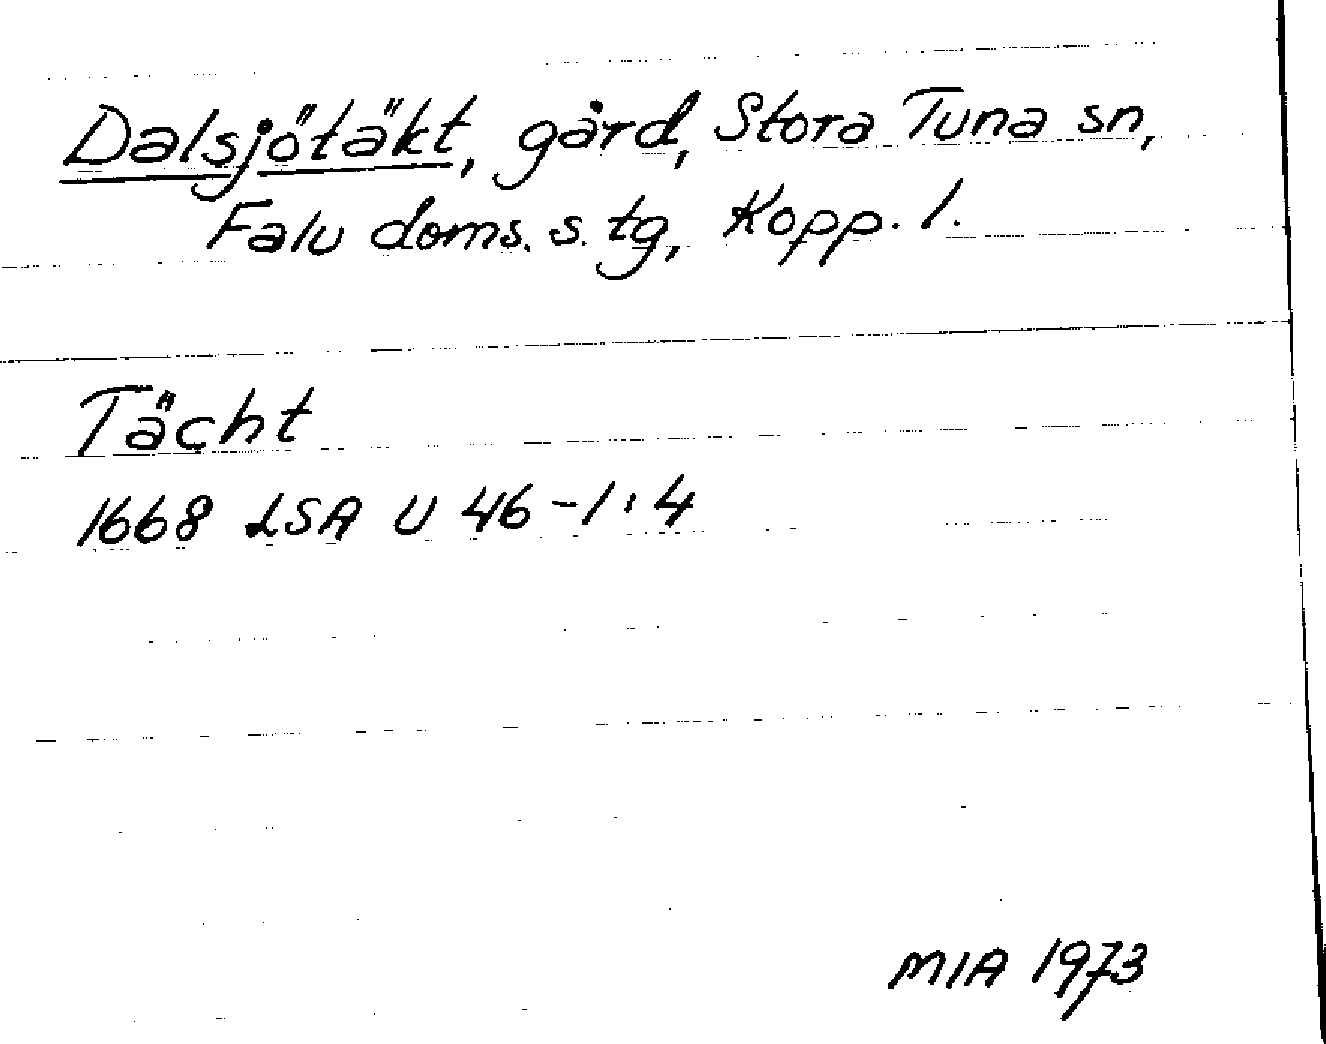 Dalsjötäkt, gård, Stora Tuna sn,
Falu doms. s. tg, Kopp. l.
Tächt
1668 LSA U 46-1:4
MIA 1973